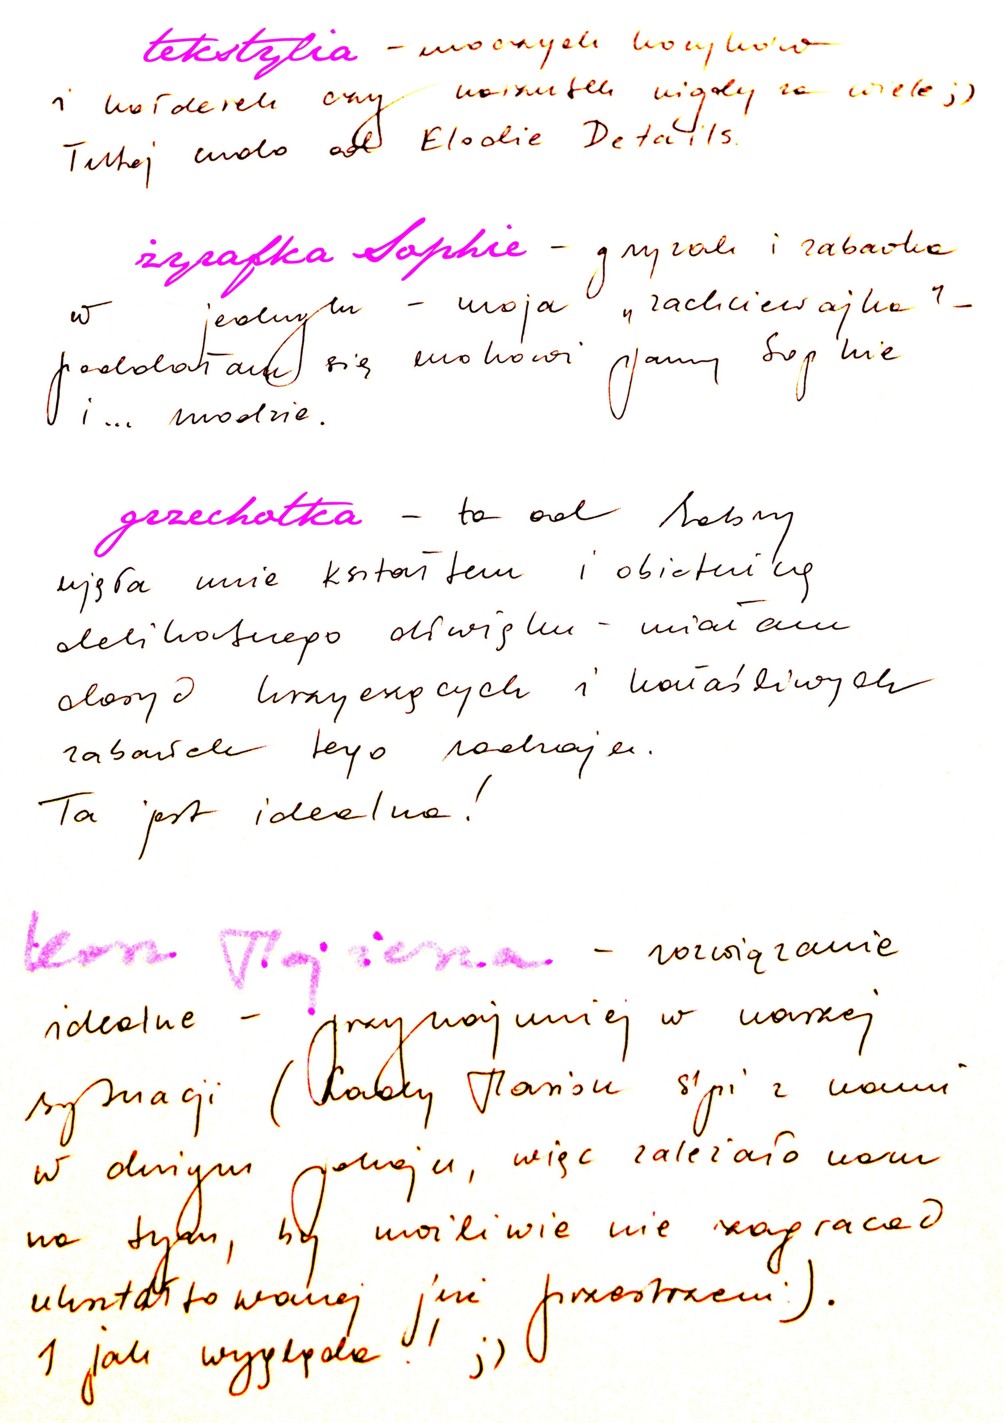 tekstylia – uroczych kocyków
i kołderek czy narzutek nigdy za wiele ;)
Tutaj cudo od Elodie Details.
żyrafka Sophie – gryzak i zabawka
w jednym – moja „zachciewajka" –
poddałam się urokowi panny Sophie
i... modzie.
grzechotka – ta od
ujęła mnie kształtem i obietnicą
delikatnego dźwięku – miałam
dosyć krzyczących i hałaśliwych
zabawek tego rodzaju.
Ta jest idealna!
kosz Mojżesza – rozwiązanie
idealne – przynajmniej w naszej
sytuacji ( śpi z nami
w dużym pokoju, więc zależało nam
na tym, by możliwie nie zagracać
ukształtowanej już przestrzeni).
I jak wygląda! ;)